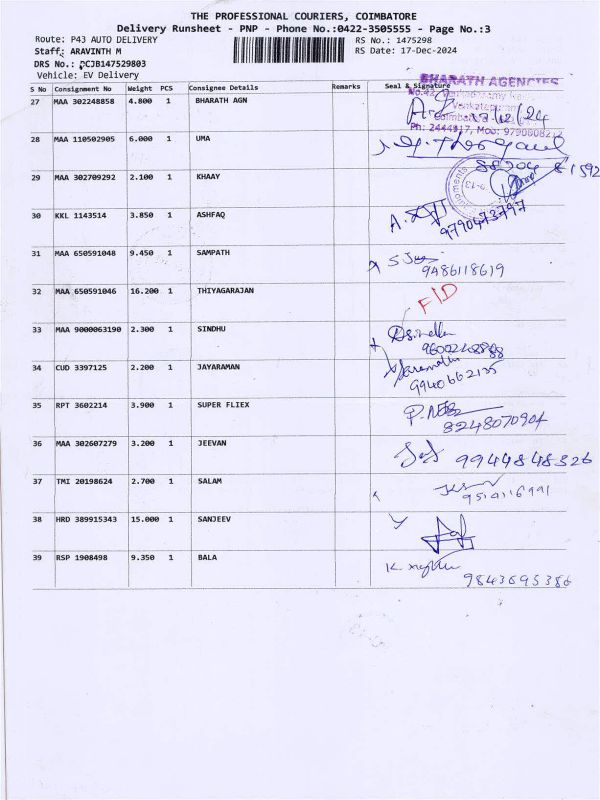 THE PROFESSIONAL COURIERS, COIMBATORE
Delivery Runsheet - PNP - Phone No.:0422-3505555 - Page No.:3
Route: P43 AUTO DELIVERY RS No.: 1475298
Staff: ARAVINTH M RS Date: 17-Dec-2024
DRS No.: PCJB147529803
Vehicle: EV Delivery
S No Consignment No Weight PCS Consignee Details Remarks Seal & Signature
BHARATH AGENCIES
27 MAA 302248858 4.800 1 BHARATH AGN
Ph: 2444917, Mob:
28 MAA 110502905 6.000 1 UMA
29 MAA 302709292 2.100 1 KHAAY
30 KKL 1143514 3.850 1 ASHFAQ A.
9790473797
31 MAA 650591048 9.450 1 SAMPATH
9486118619
32 MAA 650591046 16.200 1 THIYAGARAJAN
33 MAA 9000063190 2.300 1 SINDHU
34 CUD 3397125 2.200 1 JAYARAMAN
9940662135
35 RPT 3602214 3.900 1 SUPER FLIEX
8248070904
36 MAA 302607279 3.200 1 JEEVAN 9944848326
37 TMI 20198624 2.700 1 SALAM
38 HRD 389915343 15.000 1 SANJEEV
39 RSP 1908498 9.350 1 BALA K.
9843695386